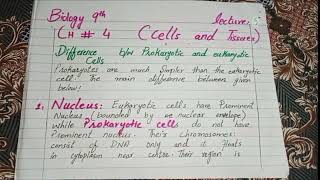 Biology 9th
lecture: 5
CH # 4 (Cells and Tissues)
Difference b/w Prokaryotic and eukaryotic
Cells
Prokaryotes are much Simpler than the eukaryotic
cells. The main difference between given
below!
1. Nucleus: Eukaryotic cells have Prominent
Nucleus (bounded by nuclear envelope)
while Prokaryotic cells do not have
Prominent nucleus. Their Chromosomes
consist of DNA only and it floats
in cytoplasm near centre. Their region is